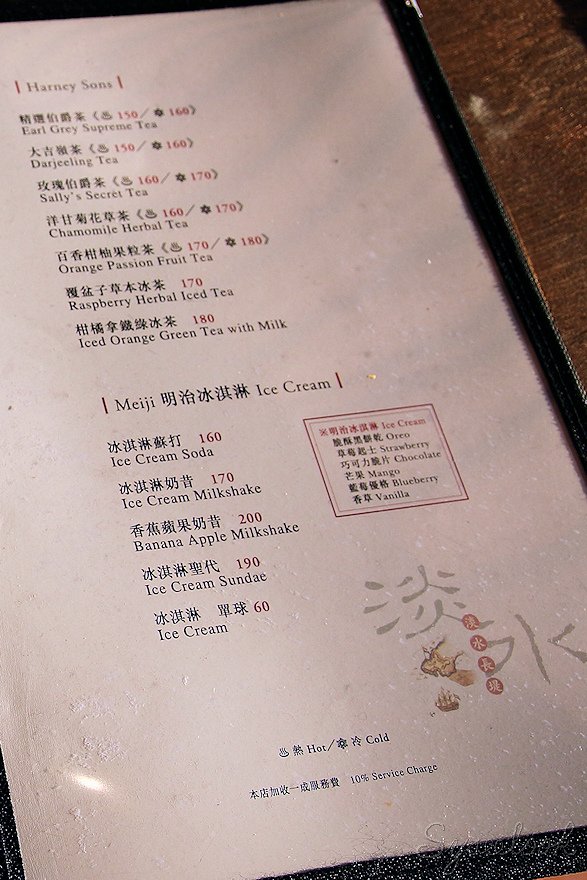 Harney Sons
精選伯爵茶《♨ 150／❄ 160》
Earl Grey Supreme Tea
大吉嶺茶《♨ 150／❄ 160》
Darjeeling Tea
玫瑰伯爵茶《♨ 160／❄ 170》
Sally's Secret Tea
洋甘菊花草茶《♨ 160／❄ 170》
Chamomile Herbal Tea
百香柑柚果粒茶《♨ 170／❄ 180》
Orange Passion Fruit Tea
覆盆子草本冰茶 170
Raspberry Herbal Iced Tea
柑橘拿鐵綠冰茶 180
Iced Orange Green Tea with Milk
Meiji 明治冰淇淋 Ice Cream
冰淇淋蘇打 160
Ice Cream Soda
冰淇淋奶昔 170
Ice Cream Milkshake
香蕉蘋果奶昔 200
Banana Apple Milkshake
冰淇淋聖代 190
Ice Cream Sundae
冰淇淋 單球 60
Ice Cream
※明治冰淇淋 Ice Cream
脆酥黑餅乾 Oreo
草莓起士 Strawberry
巧可力脆片 Chocolate
芒果 Mango
藍莓優格 Blueberry
香草 Vanilla
淡水
淡水長堤
♨ 熱 Hot／❄ 冷 Cold
本店加收一成服務費 10% Service Charge